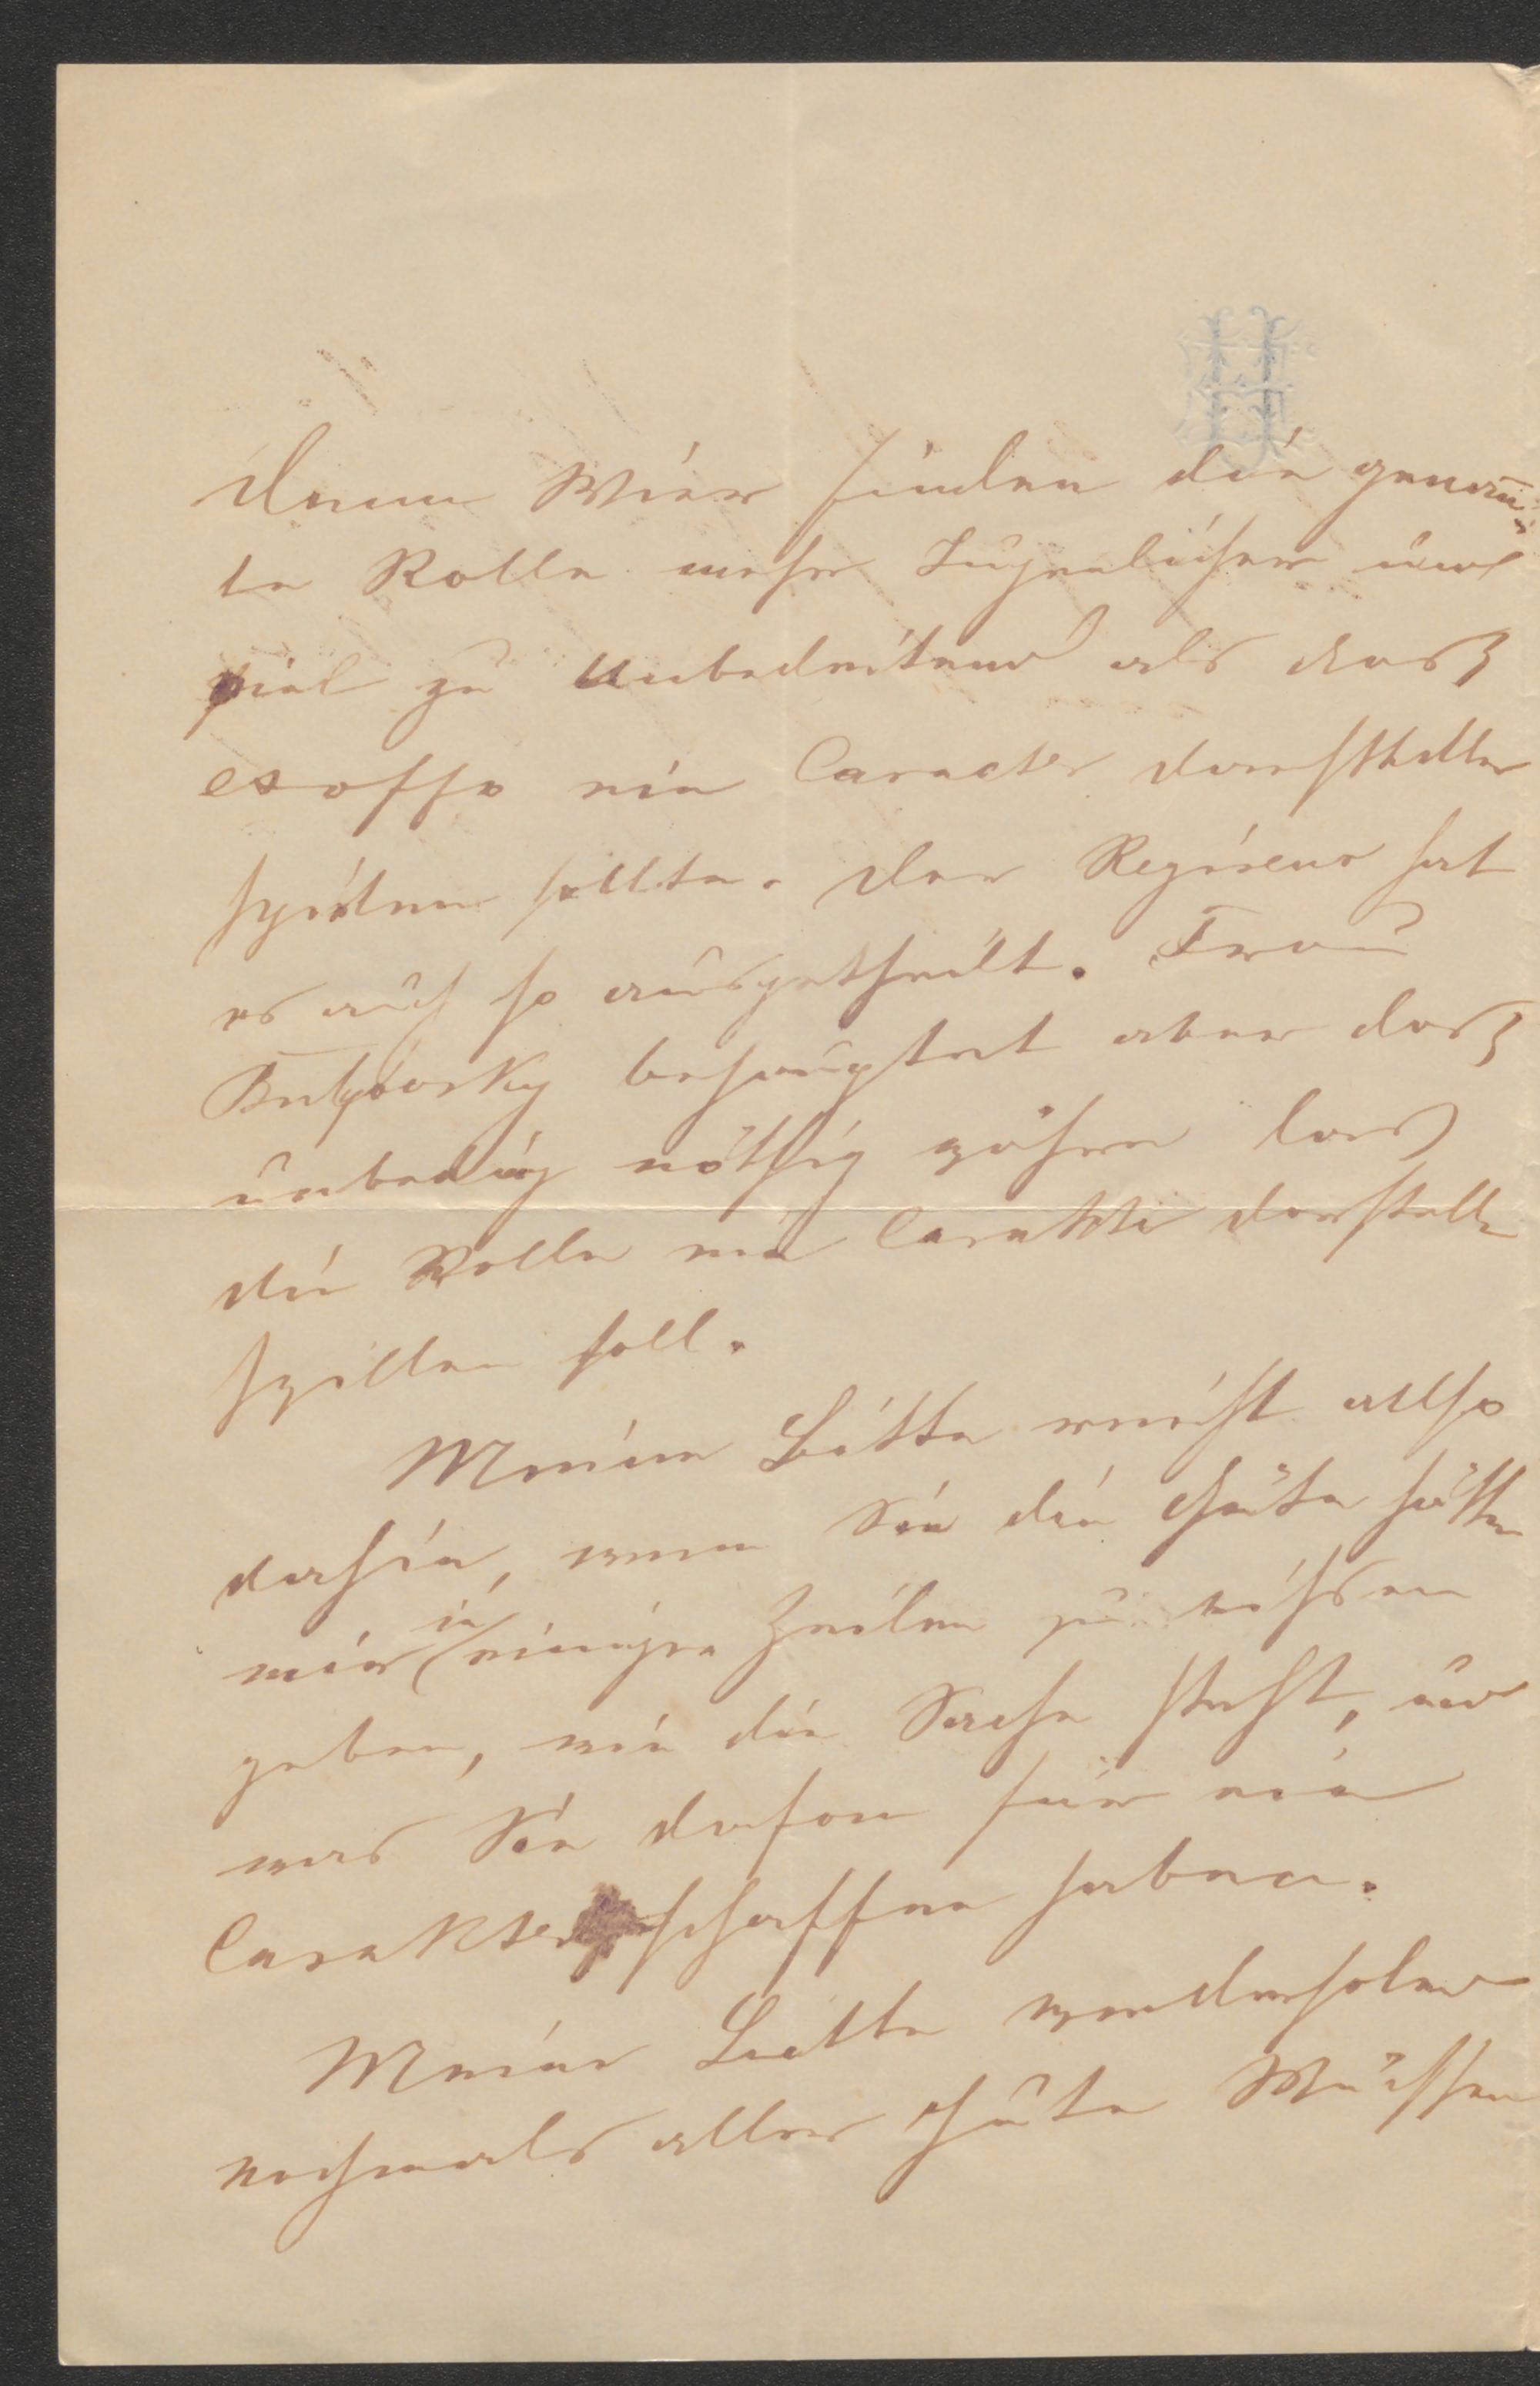 Denn Wier finden die genan̄-
te Rolle mehr Jugenlicher und
viel zu Unbedeitend als dasz
ex offo ein Caracter darsteller
spielen sollte. Der Regiseur hat
es auch so ausgetheilt. Frau
behauptet aber dasz
unbeding nöthig währe das
die Rolle ein Carakter darstelle
spillen soll.
Meine Bitte reicht allso
dahin, wenn Sie die Güte hätten
mir in einigen Zeilen zu wissen
geben, wie die Sache steht, und
was Sie dafon für ein
Carakter schaffen haben.
Meine Bitte wiederholend
nochmals aller Güte